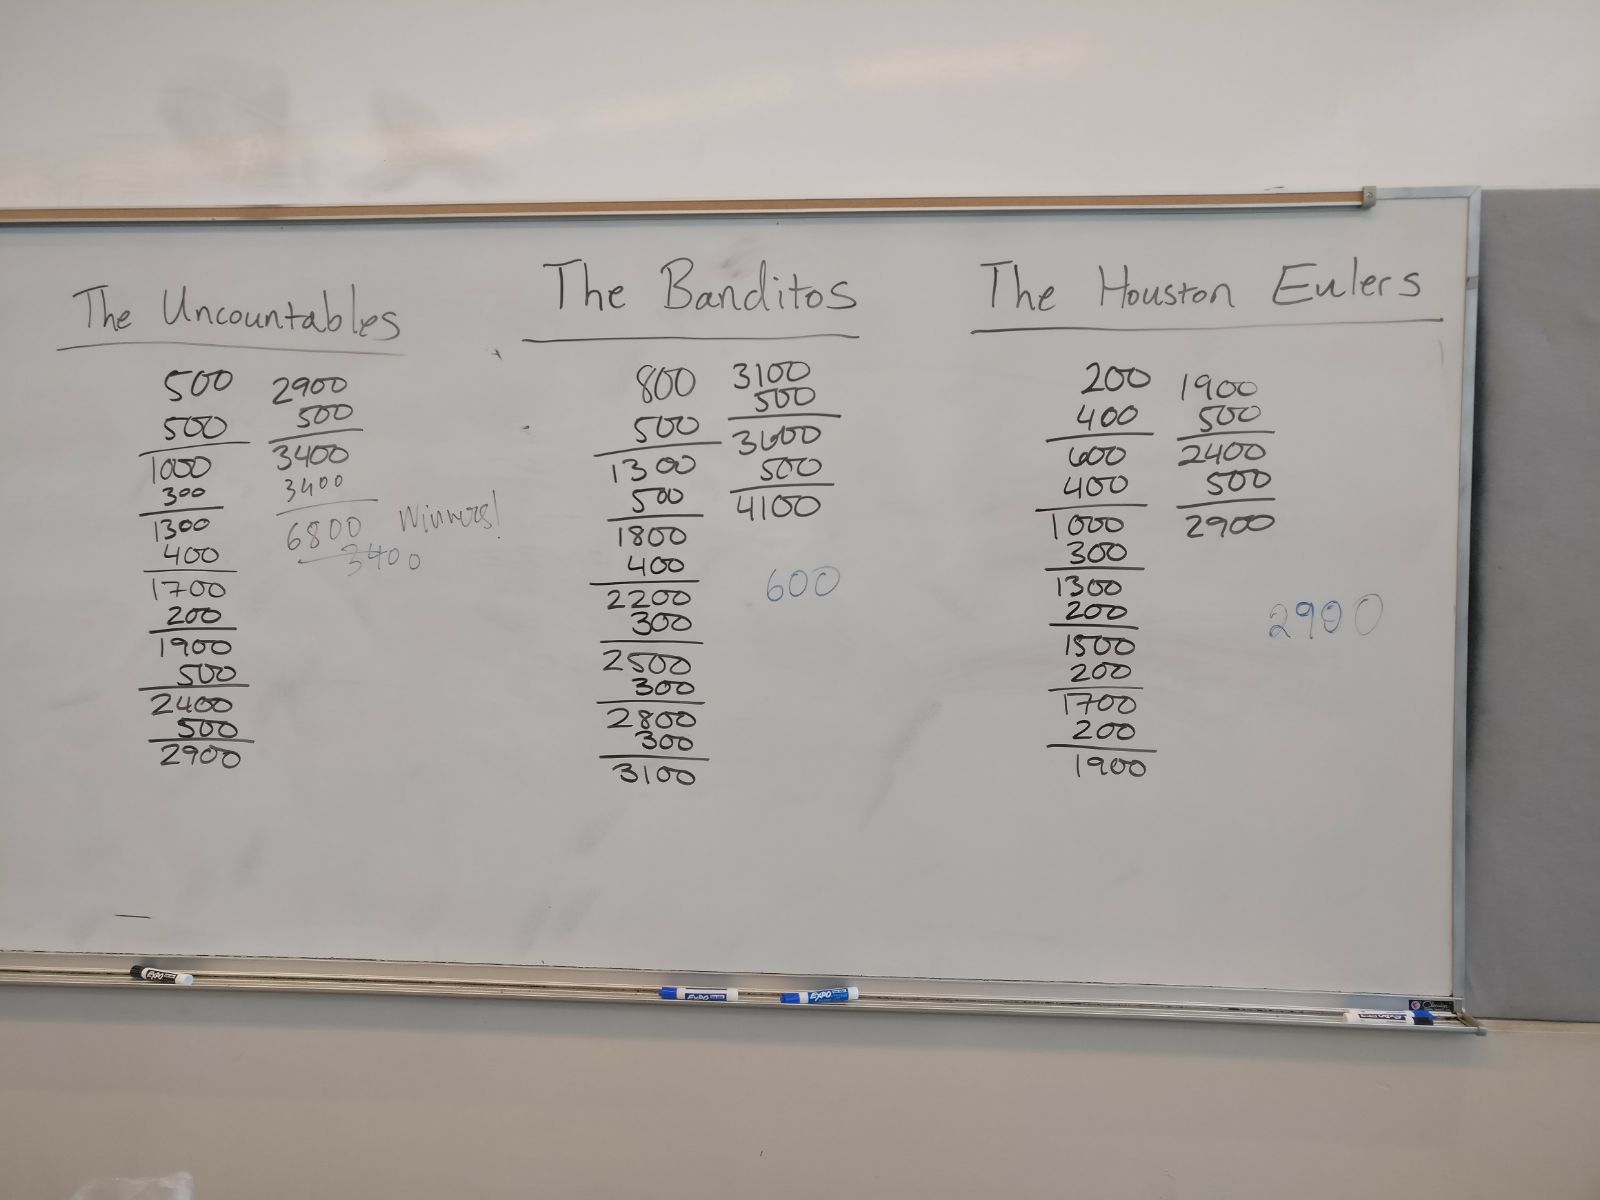 The Uncountables
500
500
1000
300
1300
400
1700
200
1900
500
2400
500
2900
2900
500
3400
3400
6800 Winners!
3400
The Banditos
800
500
1300
500
1800
400
2200
300
2500
300
2800
300
3100
3100
500
3600
500
4100
600
The Houston Eulers
200
400
600
400
1000
300
1300
200
1500
200
1700
200
1900
1900
500
2400
500
2900
2900
EXPO
EXPO
EXPO